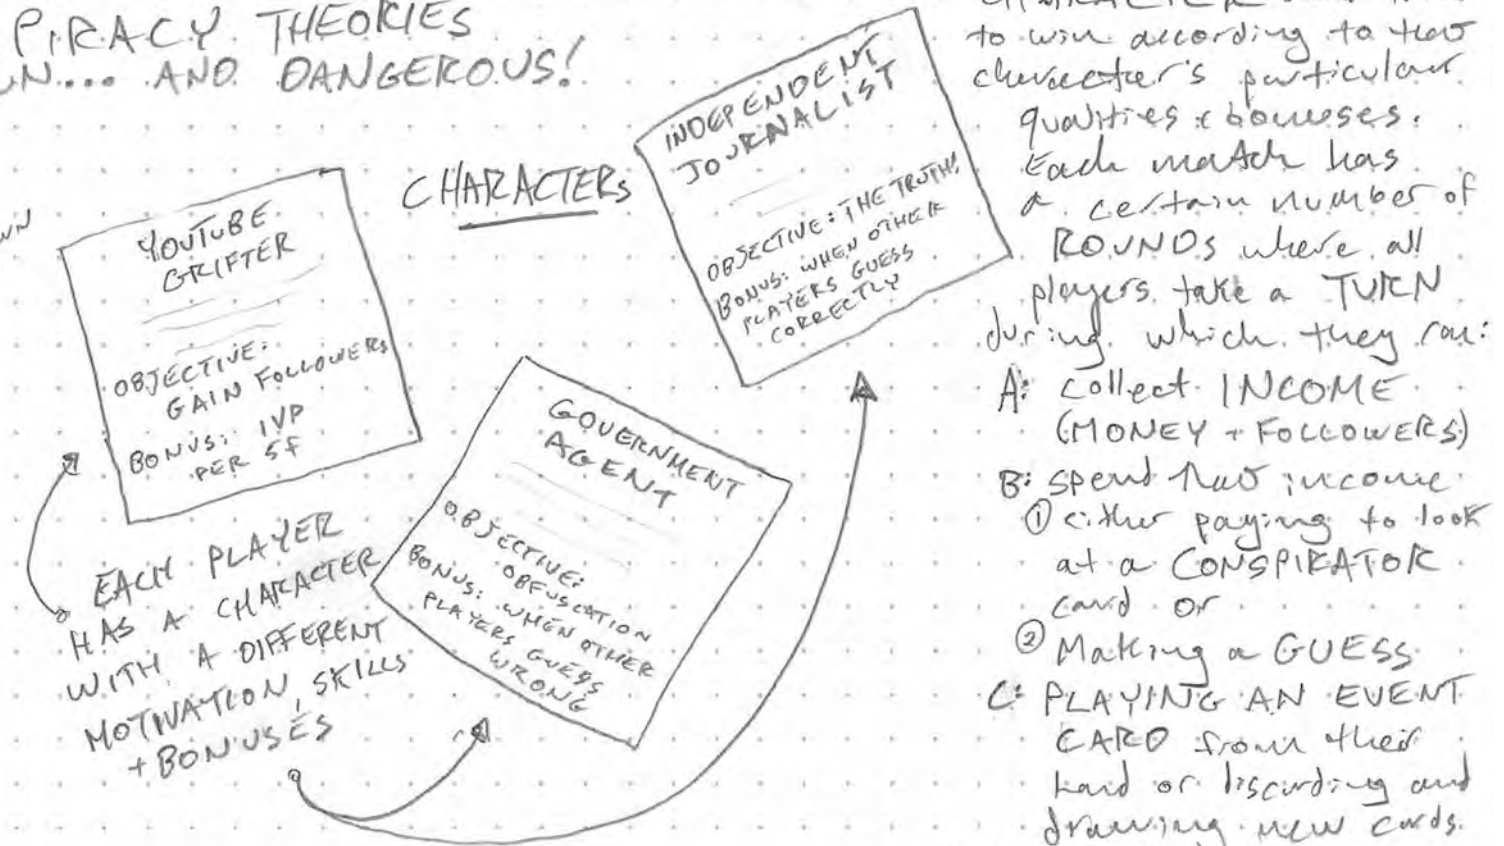 PIRACY THEORIES
UN... AND DANGEROUS!
CHARACTERS
YOUTUBE
GRIFTER
OBJECTIVE:
GAIN FOLLOWERS
BONUS: 1VP
PER 5F
INDEPENDENT
JOURNALIST
OBJECTIVE: THE TRUTH!
BONUS: WHEN OTHER
PLAYERS GUESS
CORRECTLY
GOVERNMENT
AGENT
OBJECTIVE:
OBFUSCATION
BONUS: WHEN OTHER
PLAYERS GUESS
WRONG
EACH PLAYER
HAS A CHARACTER
WITH A DIFFERENT
MOTIVATION, SKILLS
+ BONUSES
CHARACTER
to win according to that
character's particular
qualities & bonuses.
Each match has
a certain number of
ROUNDS where all
players take a TURN
during which they can:
A: collect INCOME
(MONEY + FOLLOWERS)
B: spend that income
① either paying to look
at a CONSPIRATOR
card or
② Making a GUESS
C: PLAYING AN EVENT
CARD from their
hand or discarding and
drawing new cards.